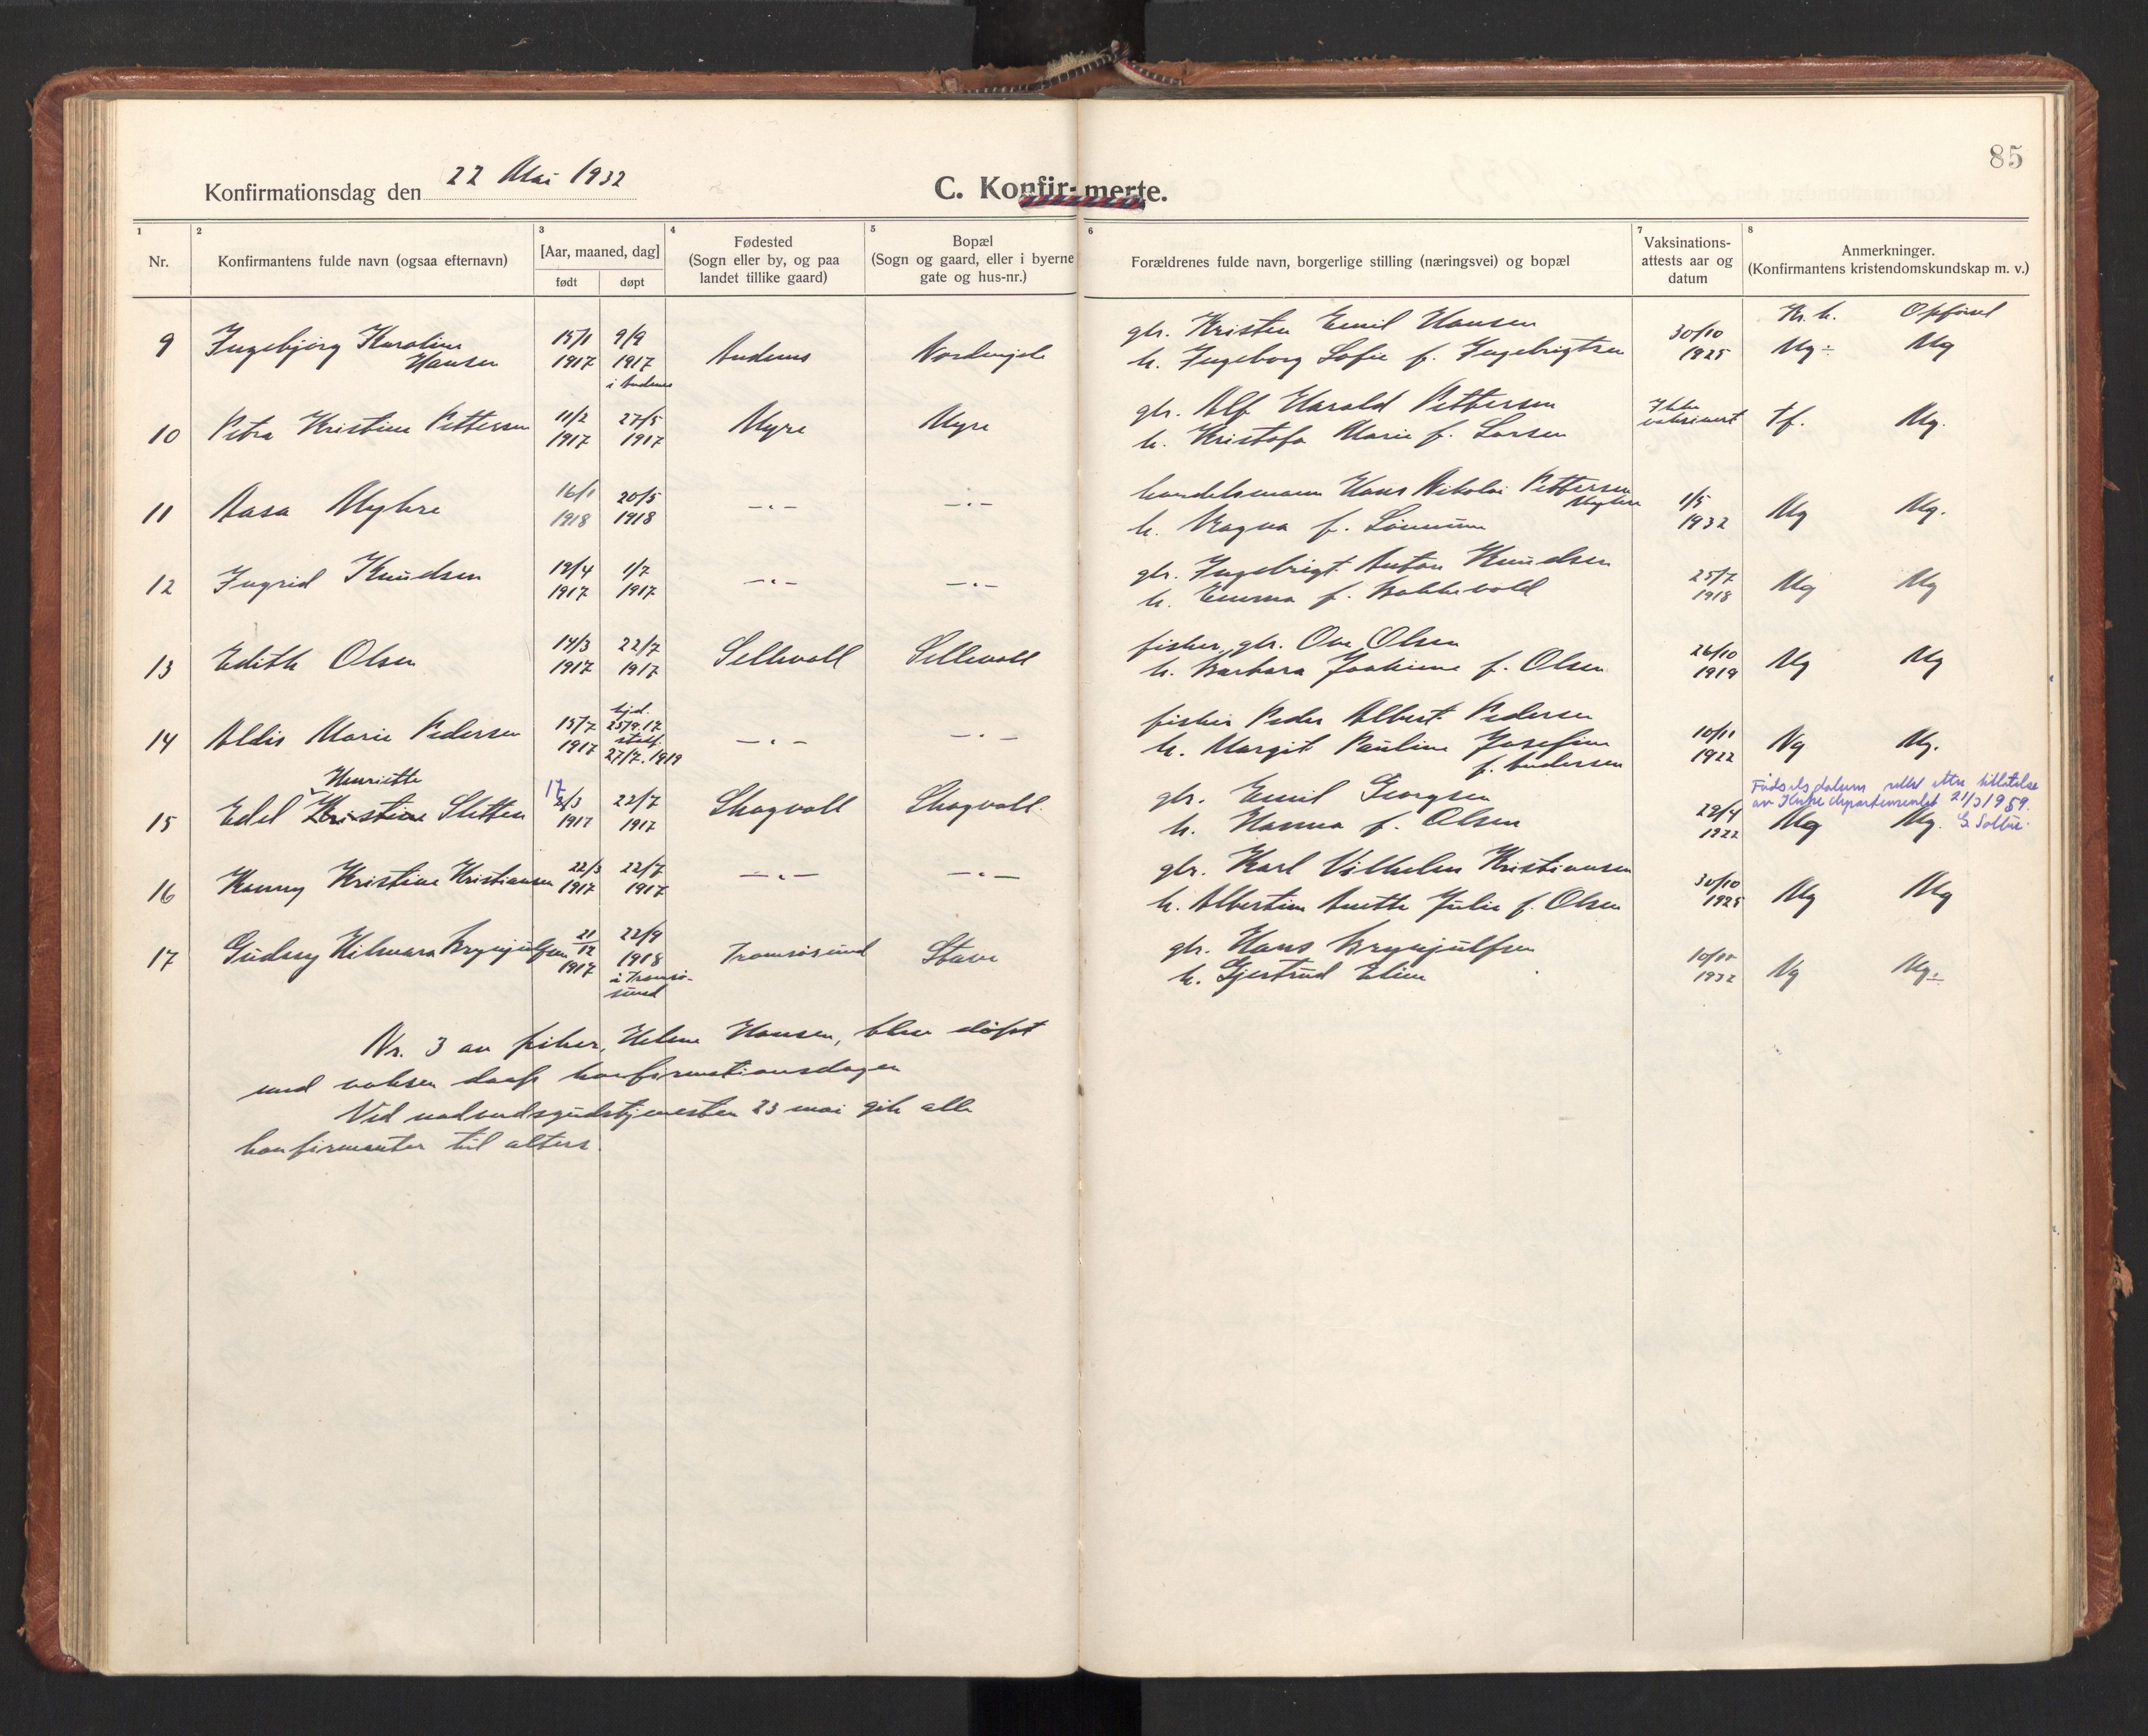 85
Konfirmationsdag den 22 Mai 1932
C. Konfir- merte.
1 2 3 4 5 6 7 8
Nr.
Konfirmantens fulde navn (ogsaa efternavn)
[Aar, maaned, dag]
født døpt
Fødested
(Sogn eller by, og paa
landet tillike gaard)
Bopæl
(Sogn og gaard, eller i byerne
gate og hus-nr.)
Forældrenes fulde navn, borgerlige stilling (næringsvei) og bopæl
Vaksinations-
attests aar og
datum
Anmerkninger.
(Konfirmantens kristendomskundskap m. v.)
Kr. k. Opførsel
9 Ingebjørg Karoline 15/1 9/9 gbr. Kristen Emil Hansen 30/10
Hansen 1917 1917 Andenes Nordmjele h. Ingeborg Sofie f. Ingebrigtsen 1925 Mg ÷ Mg
i Andenes
10 Petra Kristine Pettersen 11/2 27/5 Myre Myre gbr. Alf Harald Pettersen Ikke
1917 1917 h. Kristofa Marie f. Larsen vaksinert tf. Mg.
11 Aasa Myhre 16/1 20/5 — " — — " — handelsmann Hans Nikolai Pettersen
Myhre 1/5
1918 1918 h. Ragna f. 1932 Mg Mg.
12 Ingrid Knudsen 19/4 1/7 — " — — " — gbr. Ingebrigt Anton Knudsen 25/7
1917 1917 h. Emma f. Bakkevold 1918 Mg Mg
13 Edith Olsen 14/3 22/7 Sellevoll Sellevoll fisker, gbr. Ove Olsen 26/10
1917 1917 h. Barbara Joakime f. Olsen 1919 Mg Mg
14 Aldis Marie Pedersen 15/7 hjd.
25/9.17 — " — — " — fisker Peder Albert Pedersen 10/11
1917 stadf.
27/7.1919 h. Margit Pauline Josefine 1922 Ng Mg.
f. Andersen
Henriette
15 Edel Kristine Sletten 17 2/3 22/7 Skogvoll Skogvoll. gbr. Emil Georgsen 29/4
1917 1917 h. Hanna f. Olsen 1922 Mg Mg.
Fødselsdatum rettet etter tillatelse
av Kirkedepartementet 21/3 1959.
G. Solbu.
16 Kanny Kristine Kristiansen 22/3 22/7 — " — — " — gbr. Karl Vilhelm Kristiansen 30/10
1917 1917 h. Albertine Anette Julie f. Olsen 1925 Mg Mg
17 Gudny Hilmara Brynjulfsen 21/12 22/9 Tromsøsund Stave gbr. Hans Brynjulfsen
1917 1918 h. Gjertrud Eline 1932 Ng Mg ÷
i Tromsø-
sund
Nr. 3 av piker, Helene Hansen, blev døpt
med voksen daap konfirmationsdagen
Ved nadverdsgudstjenesten 23 mai gik alle
konfirmanter til alters.